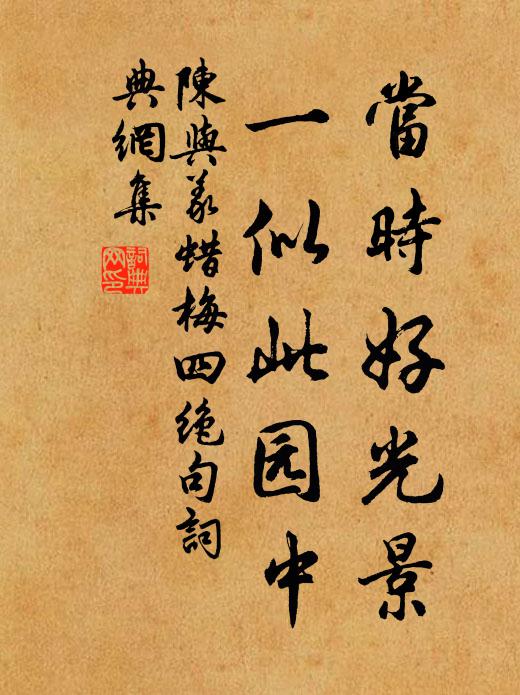 當時好光景
一似此园中
陳與義蜡梅四絶句詞
典網集
詞典
网印